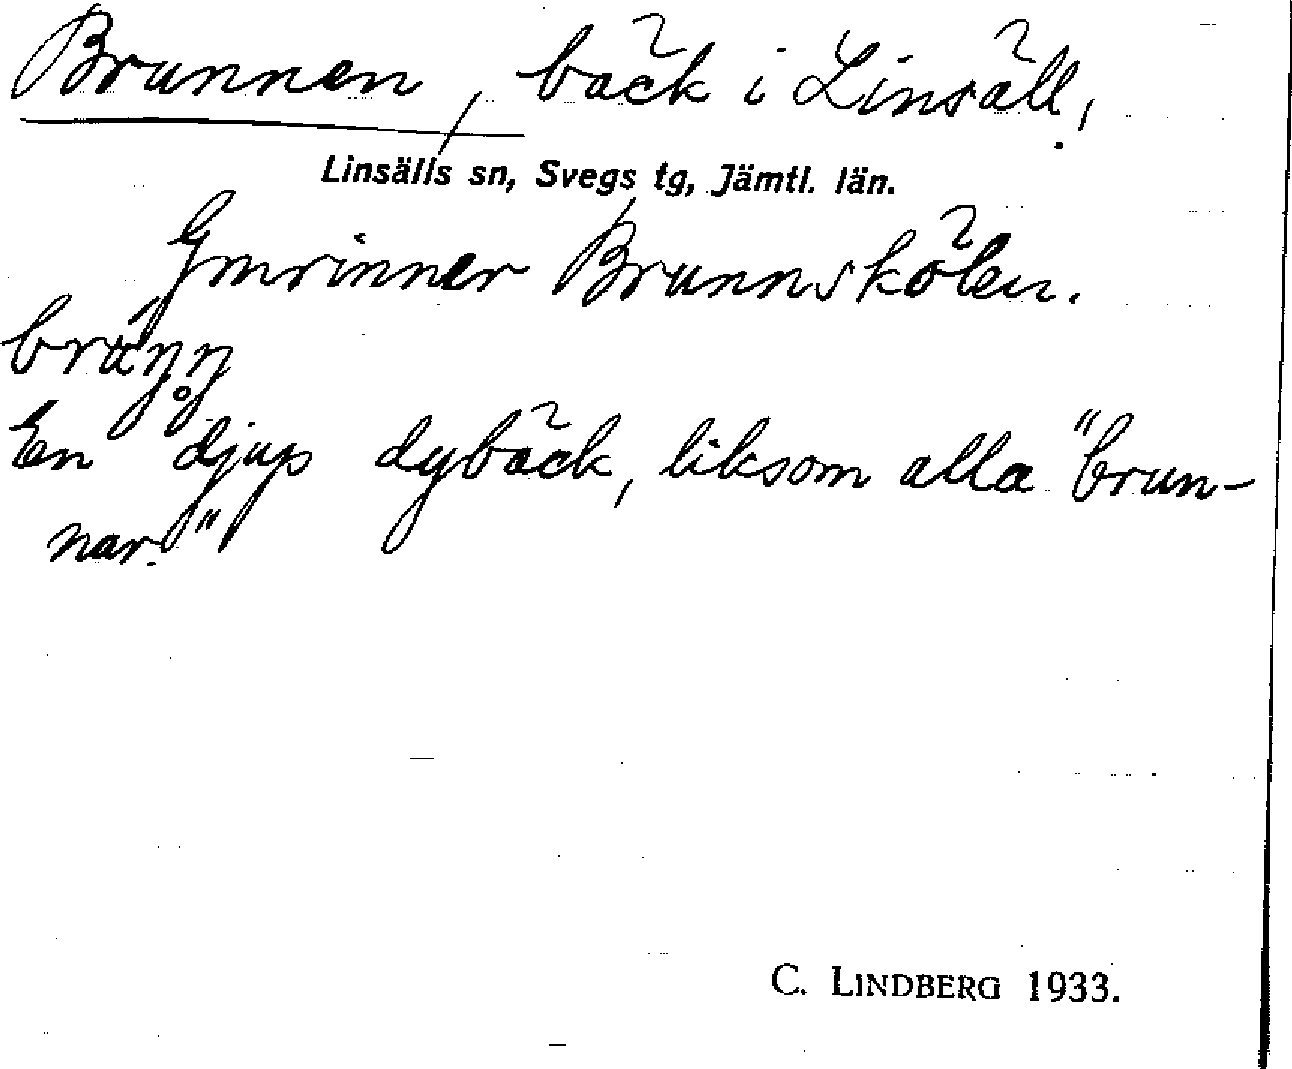 Brunnen, bäck i Linsäll,
Linsälls sn, Svegs tg, Jämtl. län.
Gmrinner Brunnskölen.
En djup dybäck, liksom alla "brun-
nar."
C. LINDBERG 1933.